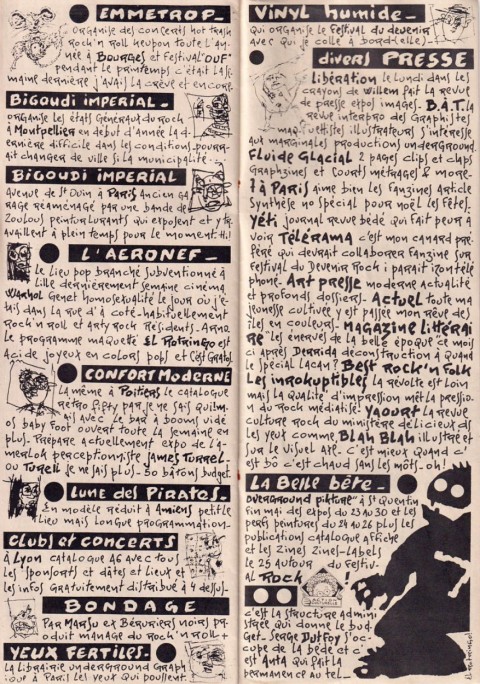 EMMETROP_
organise des concerts hot trash
Rock'n Roll keupon toute l'an
née à Bourges et Festival "OUF"
pendant le Printemps c'était la se
maine dernière j'avais la crève et encore.
Bigoudi impérial_
organise les états Généraux du Rock
à Montpellier en début d'année la d-
ernière difficile dans les conditions pourr-
ait changer de ville si la municipalité
Bigoudi impérial
Avenue de St Ouin à Paris ancien ga
rage réaménagé par une bande de
Zoulous peinturlurants qui exposent et y tr-
availlent à plein temps pour le moment.
L'AERONEF_
Le lieu pop branché subventionné à
Lille dernièrement semaine cinéma
Warhol Genet homosexualité le jour où j'é-
tais dans la rue d'à côté-habituellement
Rock'n roll et arty rock Résidents-Arno
le programme maquetté El Rotringo est
acide joyeux en colors pops et c'est Gratos.
Confort Moderne
la même à Poitiers le catalogue
retro
avec le bar à booms vidé
os baby foot ouvert toute la semaine en
plus. Prépare actuellement expo de l'a-
merloh perceptionniste James Turrel_
ou Turell je ne sais plus_ 50 bâtons budget.
Lune des Pirates_
En modèle réduit à Amiens petit le
lieu mais longue programmation_
Clubs et Concerts
à Lyon catalogue A6 avec tous
les "sponsorts" et dâtes et lieux et
les infos Gratuitement distribué à 4 dessus_
BONDAGE
Par Marsu ex Béruriers noirs pr
oduit manage du rock'n'roll +
Yeux Fertiles_
La librairie underground Graph
ique à Paris les yeux qui poussent.
Vinyl humide_
qui organise le Festival du devenir
avec qui je colle à bord(elle)_
divers PRESSE
Libération le lundi dans les
crayons de Willem Pait la revue
de presse expos images. B.A.T. la
revue interpro des Graphistes
maquettistes illustrateurs s'intéresse
aux marginales productions underground.
Fluide Glacial 2 pages clips et claps
Graphzines et Courts métrages & more_
7 à Paris aime bien les Fanzines Article
Synthèse no spécial pour noël les Fêtes_
Yéti journal revue bédé qui Fait peur à
voir Télérama c'est mon canard pré-
féré qui devrait collaborer Fanzine sur
Festival du Devenir Rock i parait iront télé
phoné_ Art presse moderne actualité
et profonds dossiers_ Actuel toute ma
jeunesse cultivée y est passée mon rêve des
îles en couleurs_ Magazine Littérai
re les énervés de la belle époque ce mois
ci après Derrida déconstruction à quand
le Spécial Lacan? Best Rock'n Folk
Les inrokuptibles la révolte est loin
mais la qualité d'impression m'éta pressio-
n du Rock médiatisé! Yaourt la revue
culture Rock du ministère délicieux ds
les yeux comme Blah Blah illustré et
sur le visuel Art_ C'est mieux quand c'
est bô c'est chaud sans les mots_oh!
La Belle bête_
Overground pikture" à St Quentin
Fin mai des expos du 23 au 30 et les
perfs peintures du 24 au 26 plus les
publications catalogue affiche
et les zines zinel-labels
le 25 autour du Festiv-
al Rock!
c'est la structure admini
strée qui donne le bud
get_ Serge Dutfoy s'oc-
cupe de la bédé et c'
est Anta qui Fait la
permanence au tel_